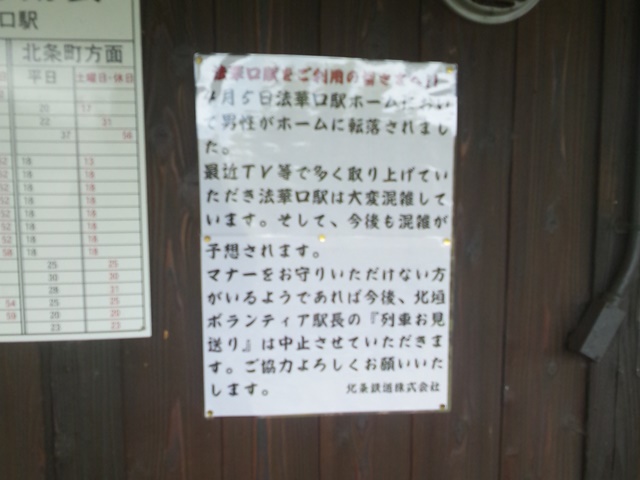 口駅
北条町方面
平日 土曜日・休日
20 17
22 31
37 56
52 18 13
52 18 18
52 18 18
52 18 18
52 18 18
52 18 18
52 18 18
58 18 18
25 25
30 30
28 31
54 25 25
59 20 20
23 23
法華口駅をご利用の皆さまへ!!
4月5日法華口駅ホームにおい
て男性がホームに転落されまし
た。
最近TV等で多く取り上げてい
ただき法華口駅は大変混雑して
います。そして、今後も混雑が
予想されます。
マナーをお守りいただけない方
がいるようであれば今後、北垣
ボランティア駅長の『列車お見
送り』は中止させていただきま
す。ご協力よろしくお願いいた
します。 北条鉄道株式会社